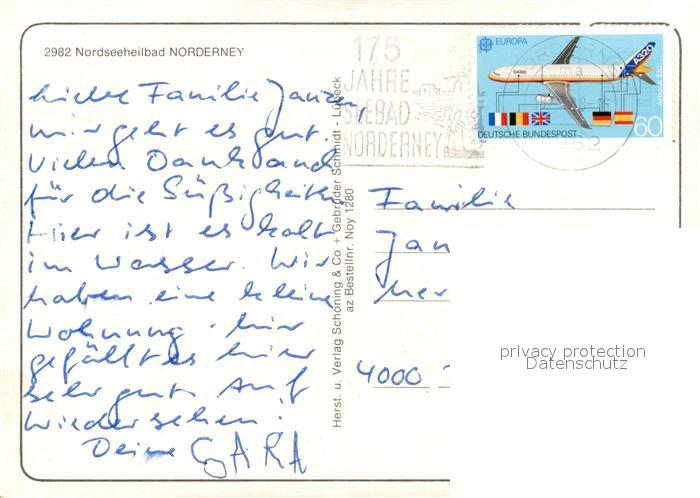 2982 Nordseeheilbad NORDERNEY
175
JAHRE
SEEBAD
NORDERNEY
EUROPA
A320
Airbus A320
DEUTSCHE BUNDESPOST
60
Liebe Familie Janzen
mir geht es gut.
Vielen Dank auch
für die Süßigkeiten
Hier ist es kalt
im Wasser. Wir
haben eine kleine
Wohnung. Mir
gefällt es hier
sehr gut. Auf
Wiedersehen!
Deine
Herst. u. Verlag Schöning & Co + Gebrüder Schmidt - Lübeck
az Bestellnr. Noy 1280
Familie
Jan
Mer
4000
privacy protection
Datenschutz